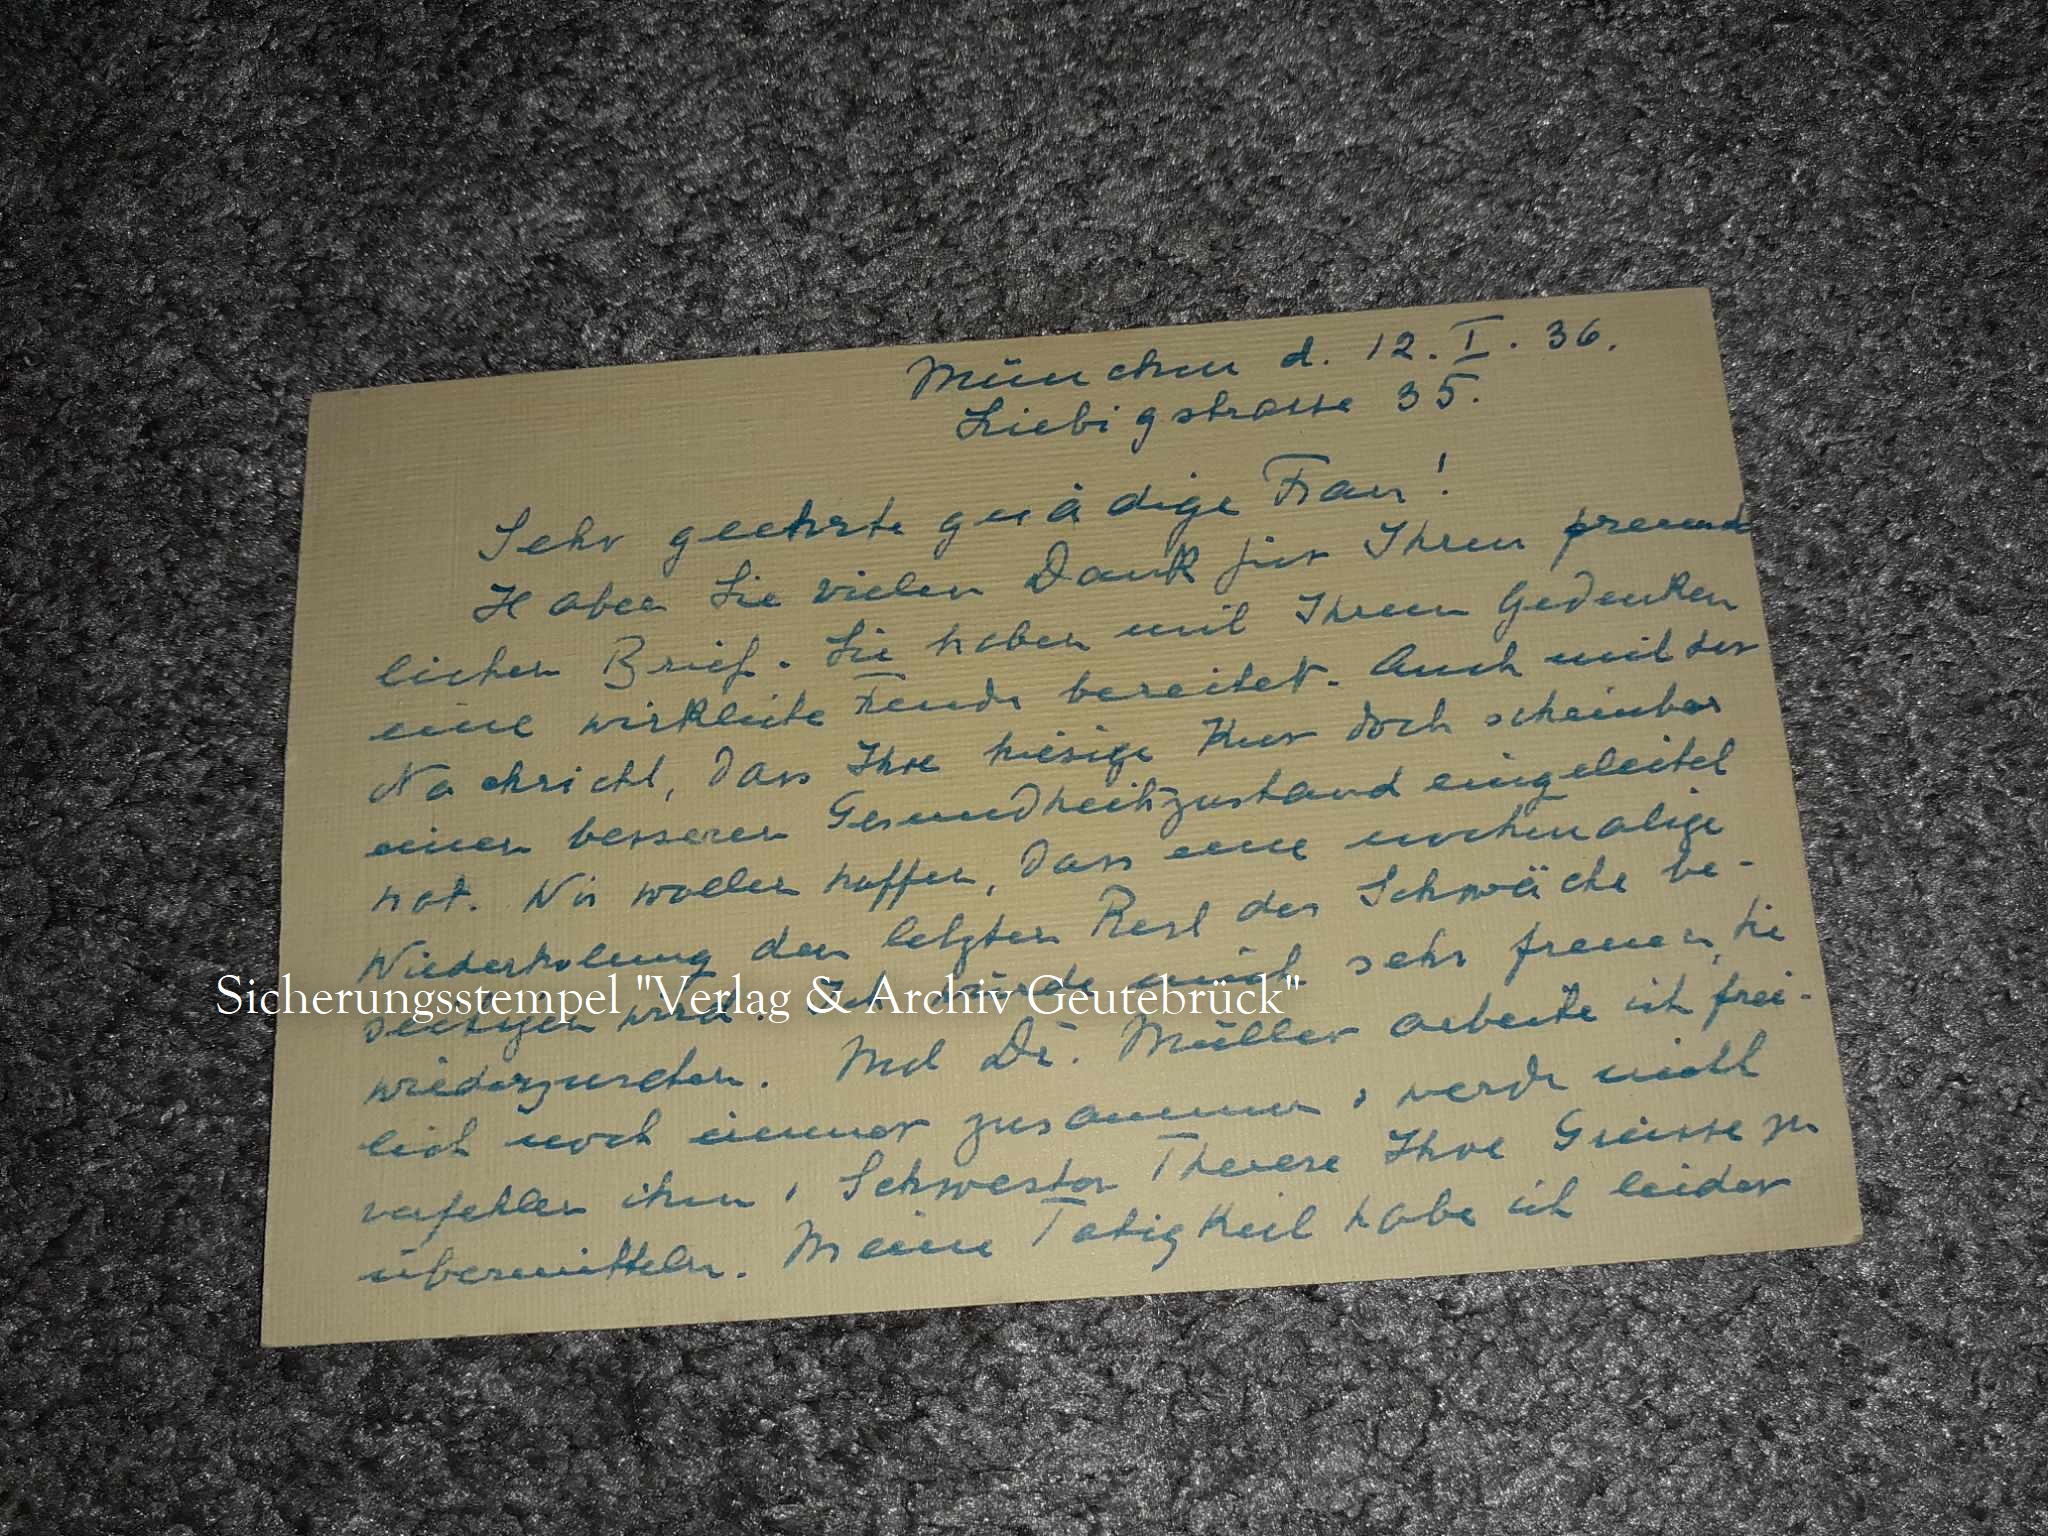 München d. 12. I. 36.
Liebigstrasse 35.
Sehr geehrte gnädige Frau!
Haben Sie vielen Dank für Ihren freund
lichen Brief. Sie haben mit Ihrem Gedenken
eine wirkliche Freude bereitet. Auch mit der
Nachricht, dass Ihre hiesige Kur doch scheinbar
einen besseren Gesundheitszustand eingeleitet
hat. Wir wollen hoffen, dass eine nochmalige
Wiederholung den letzten Rest der Schwäche be-
seitigen wird. Ich würde mich sehr freuen, Sie
Sicherungsstempel "Verlag & Archiv Geutebrück"
wiederzusehen. Mit Dr. Müller arbeite ich frei-
lich noch immer zusammen, werde nicht
verfehlen ihm, Schwester Therese Ihre Grüsse zu
übermitteln. Meine Tätigkeit habe ich leider